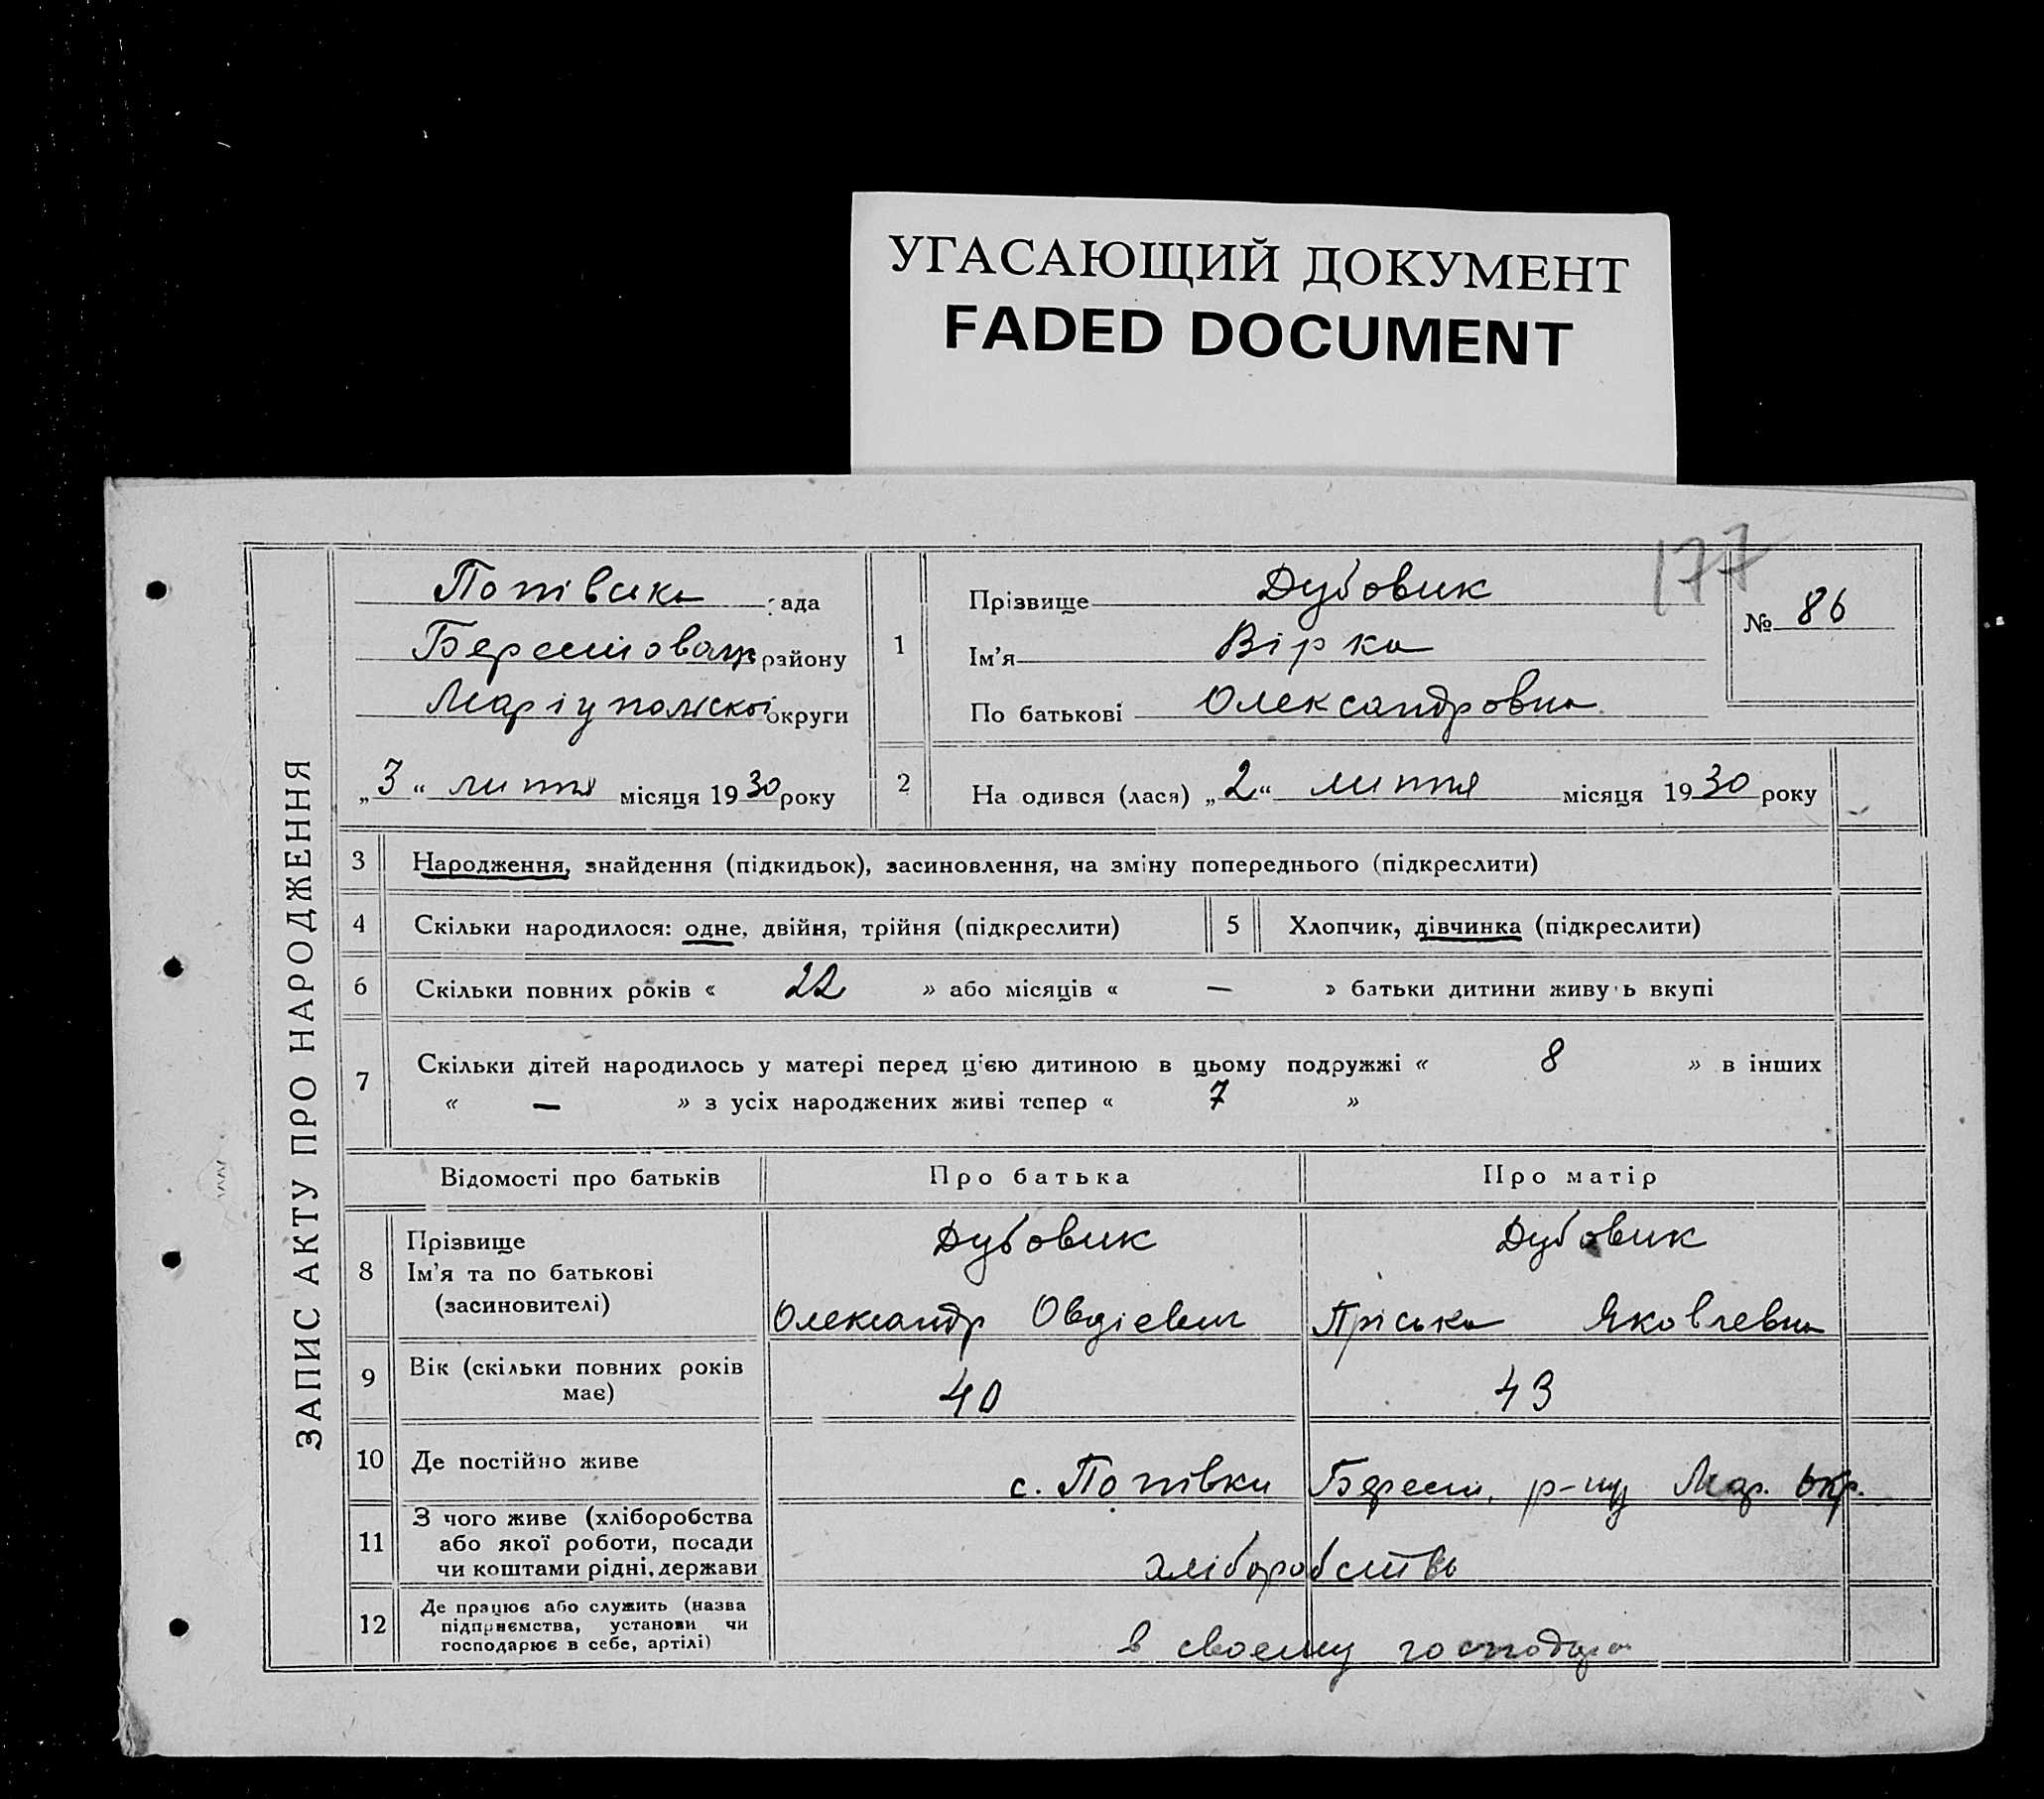 УГАСАЮЩИЙ ДОКУМЕНТ
FADED DOCUMENT
177
ЗАПИС АКТУ ПРО НАРОДЖЕННЯ
Попівська рада
району
Маріупольскої округи
„3“ липня місяця 1930 року
1
Прізвище Дубовик
Ім'я Вірка
По батькові Олександровна
№ 86
2 На одився (лася) „2“ липня місяця 1930 року
3 Народження, знайдення (підкидьок), засиновлення, на зміну попереднього (підкреслити)
4 Скільки народилося: одне, двійня, трійня (підкреслити) 5 Хлопчик, дівчинка (підкреслити)
6 Скільки повних років « 22 » або місяців « — » батьки дитини живу ь вкупі
7 Скільки дітей народилось у матері перед цією дитиною в цьому подружжі « 8 » в інших
« — » з усіх народжених живі тепер « 7 »
Відомості про батьків Про батька Про матір
8 Прізвище Дубовик Дубовик
Ім'я та по батькові
(засиновителі) Олександр Овдієвич Пріська Яковлевна
9 Вік (скільки повних років
має) 40 43
10 Де постійно живе с. Попівки Берест. р-ну Мар. окр.
11 З чого живе (хліборобства
або якої роботи, посади
чи коштами рідні, держави хліборобство
12 Де працює або служить (назва
підприємства, установи чи
господарює в себе, артілі) в своєму